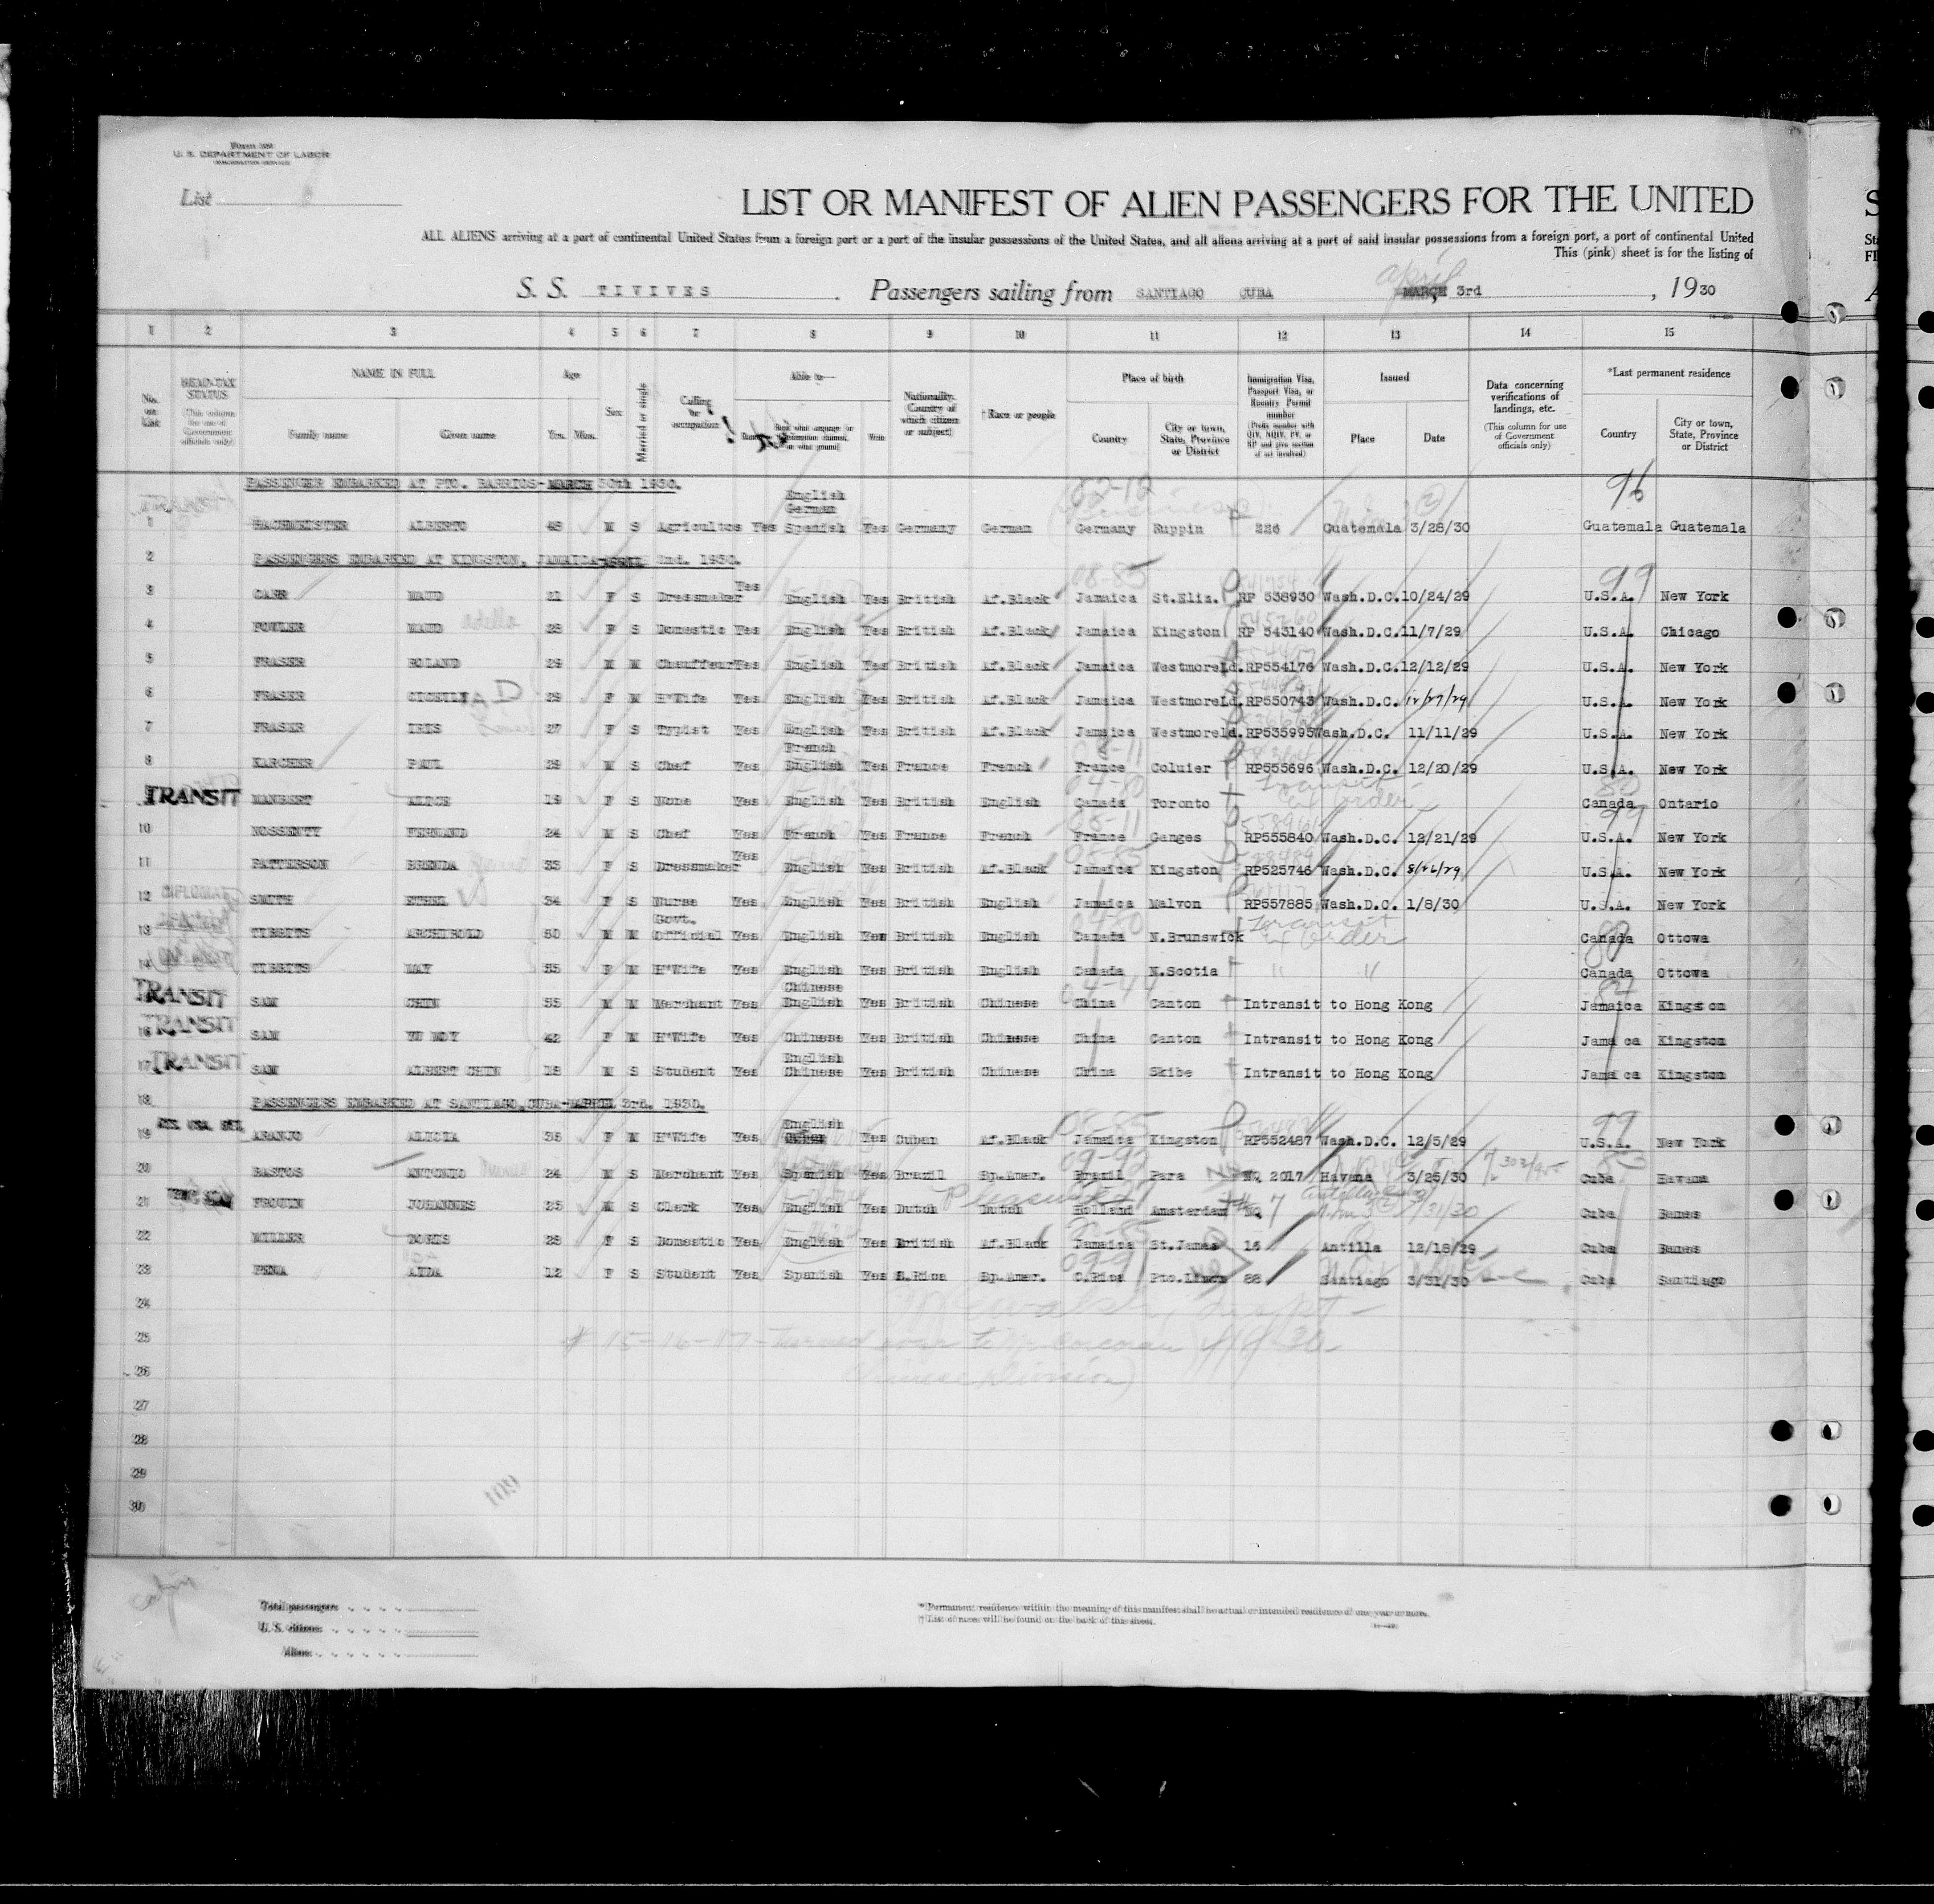 Form 500
U. S. DEPARTMENT OF LABOR
IMMIGRATION SERVICE
List
LIST OR MANIFEST OF ALIEN PASSENGERS FOR THE UNITED
ALL ALIENS arriving at a port of continental United States from a foreign port or a port of the insular possessions of the United States, and all aliens arriving at a port of said insular possessions from a foreign port, a port of continental United
This (pink) sheet is for the listing of
S. S. TIVIVES Passengers sailing from SANTIAGO CUBA MARCH April 3rd, 1930
1 2 3 4 5 6 7 8 9 10 11 12 13 14 15
No. on List
HEAD-TAX STATUS (This column for use of Government officials only)
NAME IN FULL Family name Given name
Age Yrs. Mos.
Sex
Married or single
Calling or occupation
Able to— Read Read what language Write
Nationality. (Country of which citizen or subject)
†Race or people
Place of birth Country City or town, State, Province or District
Immigration Visa, Passport Visa, or Reentry Permit number (Prefix number with QIV, NQIV, PV, or RP and give section of act involved)
Issued Place Date
Data concerning verifications of landings, etc. (This column for use of Government officials only)
*Last permanent residence Country City or town, State, Province or District
PASSENGER EMBARKED AT PTO. BARRIOS-MARCH 30th 1930. 02-12 96
TRANSIT
1 HACHMEISTER ALBERTO 48 M S Agricultos Yes English German Spanish Yes Germany German Germany Ruppin 226 Guatemala 3/28/30 Guatemala Guatemala
2 PASSENGERS EMBARKED AT KINGSTON, JAMAICA-APRIL 2nd. 1930.
08-85 99
3 CARR MAUD 31 F S Dressmaker Yes English Yes British Af.Black Jamaica St.Eliz. RP 538930 Wash.D.C. 10/24/29 U.S.A. New York
4 FOWLER MAUD Adella 28 F S Domestic Yes English Yes British Af.Black Jamaica Kingston RP 543140 Wash.D.C. 11/7/29 U.S.A. Chicago
5 FRASER ROLAND 29 M M Chauffeur Yes English Yes British Af.Black Jamaica Westmoreld. RP554176 Wash.D.C. 12/12/29 U.S.A. New York
6 FRASER CICELY D 29 F M H'Wife Yes English Yes British Af.Black Jamaica Westmoreld. RP550743 Wash.D.C. 12/27/29 U.S.A. New York
7 FRASER IRIS 27 F S Typist Yes English Yes British Af.Black Jamaica Westmoreld. RP535995 Wash.D.C. 11/11/29 U.S.A. New York
8 KARCHER PAUL 29 M S Chef Yes French English Yes France French France Coluier RP555696 Wash.D.C. 12/20/29 U.S.A. New York
TRANSIT MANBERT ALICE 19 F S None Yes English Yes British English Canada Toronto Transit in order Canada Ontario
10 NOSSENTY FERNAND 24 M S Chef Yes French Yes France French France Ganges RP555840 Wash.D.C. 12/21/29 U.S.A. New York
11 PATTERSON BRENDA 33 F S Dressmaker Yes English Yes British Af.Black Jamaica Kingston RP525746 Wash.D.C. 8/26/29 U.S.A. New York
12 SMITH ETHEL 34 F S Nurse Yes English Yes British English Jamaica Malvon RP557885 Wash.D.C. 1/8/30 U.S.A. New York
DIPLOMAT
13 TIBBITS ARCHIBOLD 50 M M Govt. Official Yes English Yes British English Canada N.Brunswick Transit in order Canada Ottowa
14 TIBBITS MAY 55 F M H'Wife Yes English Yes British English Canada N.Scotia " " Canada Ottowa
TRANSIT SAM CHIN 55 M M Merchant Yes Chinese English Yes British Chinese China Canton Intransit to Hong Kong Jamaica Kingston
16 TRANSIT SAM YU MOY 42 F M H'Wife Yes Chinese Yes British Chinese China Canton Intransit to Hong Kong Jama ca Kingston
17 TRANSIT SAM ALBERT CHIN 18 M S Student Yes English Chinese Yes British Chinese China Skibe Intransit to Hong Kong Jama ca Kingston
18 PASSENGERS EMBARKED AT SANTIAGO, CUBA-APRIL 3rd. 1930.
19 ARANJO ALICIA 36 F M H'Wife Yes English Yes Cuban Af.Black Jamaica Kingston RP552487 Wash.D.C. 12/5/29 U.S.A. New York
20 BASTOS ANTONIO 24 M S Merchant Yes Spanish Yes Brazil Sp.Amer. Brazil Para NQ 2017 Havana 3/25/30 Cuba Havana
21 FROUIN JOHANNES 25 M S Clerk Yes English Yes Dutch Dutch Holland Amsterdam NQ 7 Antilla 3/31/30 Cuba Banes
22 MILLER DORIS 28 F S Domestic Yes English Yes British Af.Black Jamaica St.James 16 Antilla 12/18/29 Cuba Banes
23 PENA AIDA 12 F S Student Yes Spanish Yes C.Rica Sp.Amer. C.Rica Pto.Limon 88 Santiago 3/31/30 Cuba Santiago
24
25 # 15-16-17- Turned over to Mr Corcoran 4/8/30
26 Chinese Division)
27
28
29
30
Total passengers
U. S. citizens
Aliens
* Permanent residence within the meaning of this manifest shall be actual or intended residence of one year or more.
† List of races will be found on the back of this sheet.